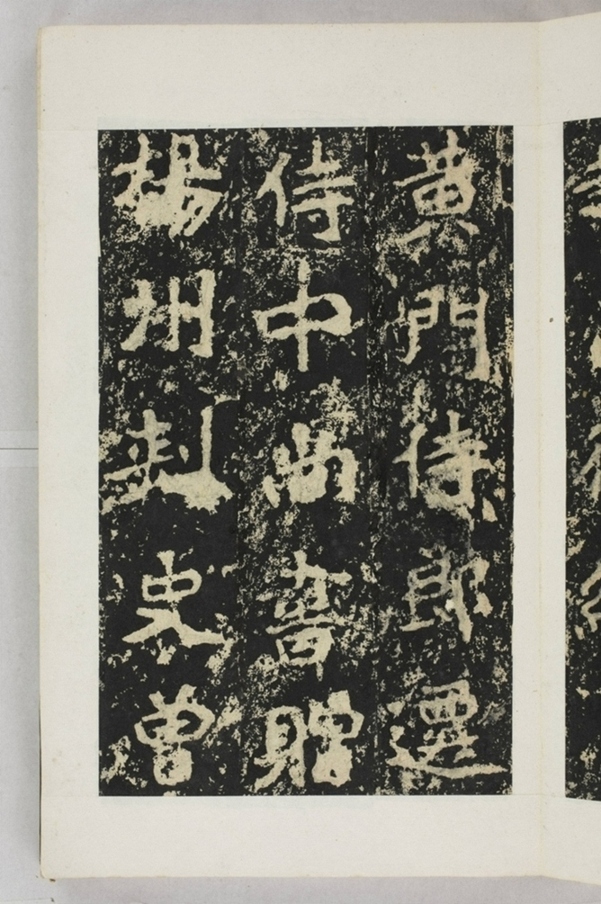 黄門侍郎遷
侍中尚書贈
楊州刺史曾